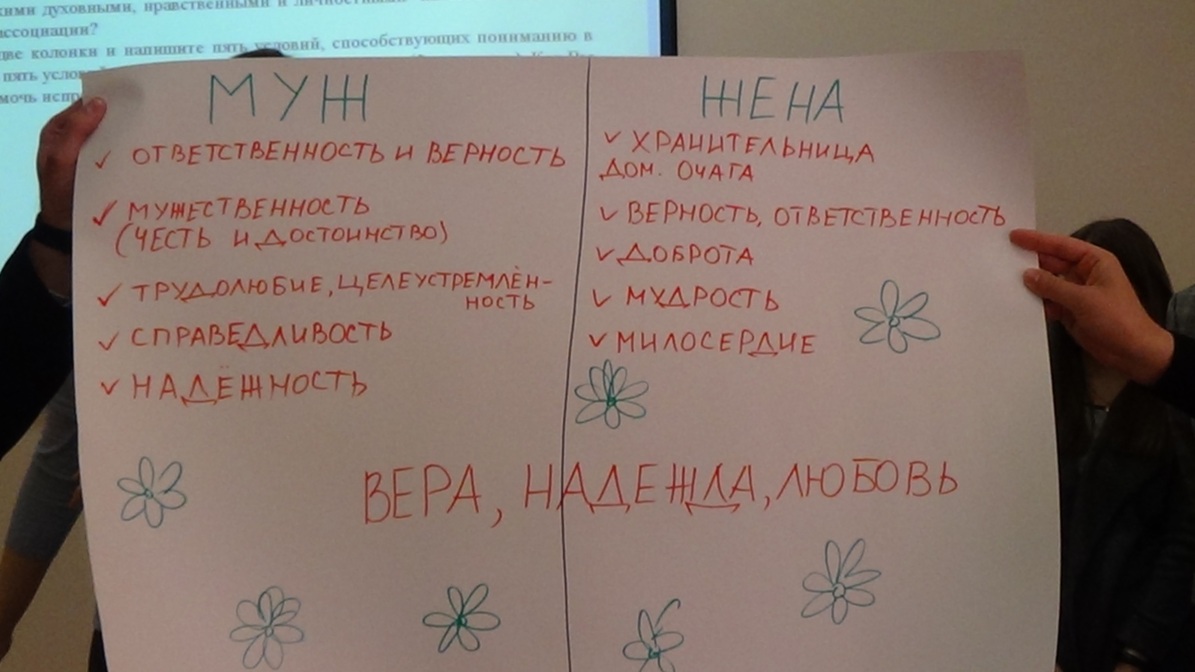 кими духовными, нравственными и
ассоциации?
две колонки и напишите пять условий, способствующих пониманию в
пять услов
мочь испр
МУЖ
✓ ОТВЕТСТВЕННОСТЬ И ВЕРНОСТЬ
✓ МУЖЕСТВЕННОСТЬ
(ЧЕСТЬ И ДОСТОИНСТВО)
✓ ТРУДОЛЮБИЕ, ЦЕЛЕУСТРЕМЛЁН-
НОСТЬ
✓ СПРАВЕДЛИВОСТЬ
✓ НАДЁЖНОСТЬ
ЖЕНА
✓ ХРАНИТЕЛЬНИЦА
ДОМ. ОЧАГА
✓ ВЕРНОСТЬ, ОТВЕТСТВЕННОСТЬ
✓ ДОБРОТА
✓ МУДРОСТЬ
✓ МИЛОСЕРДИЕ
ВЕРА, НАДЕЖДА, ЛЮБОВЬ